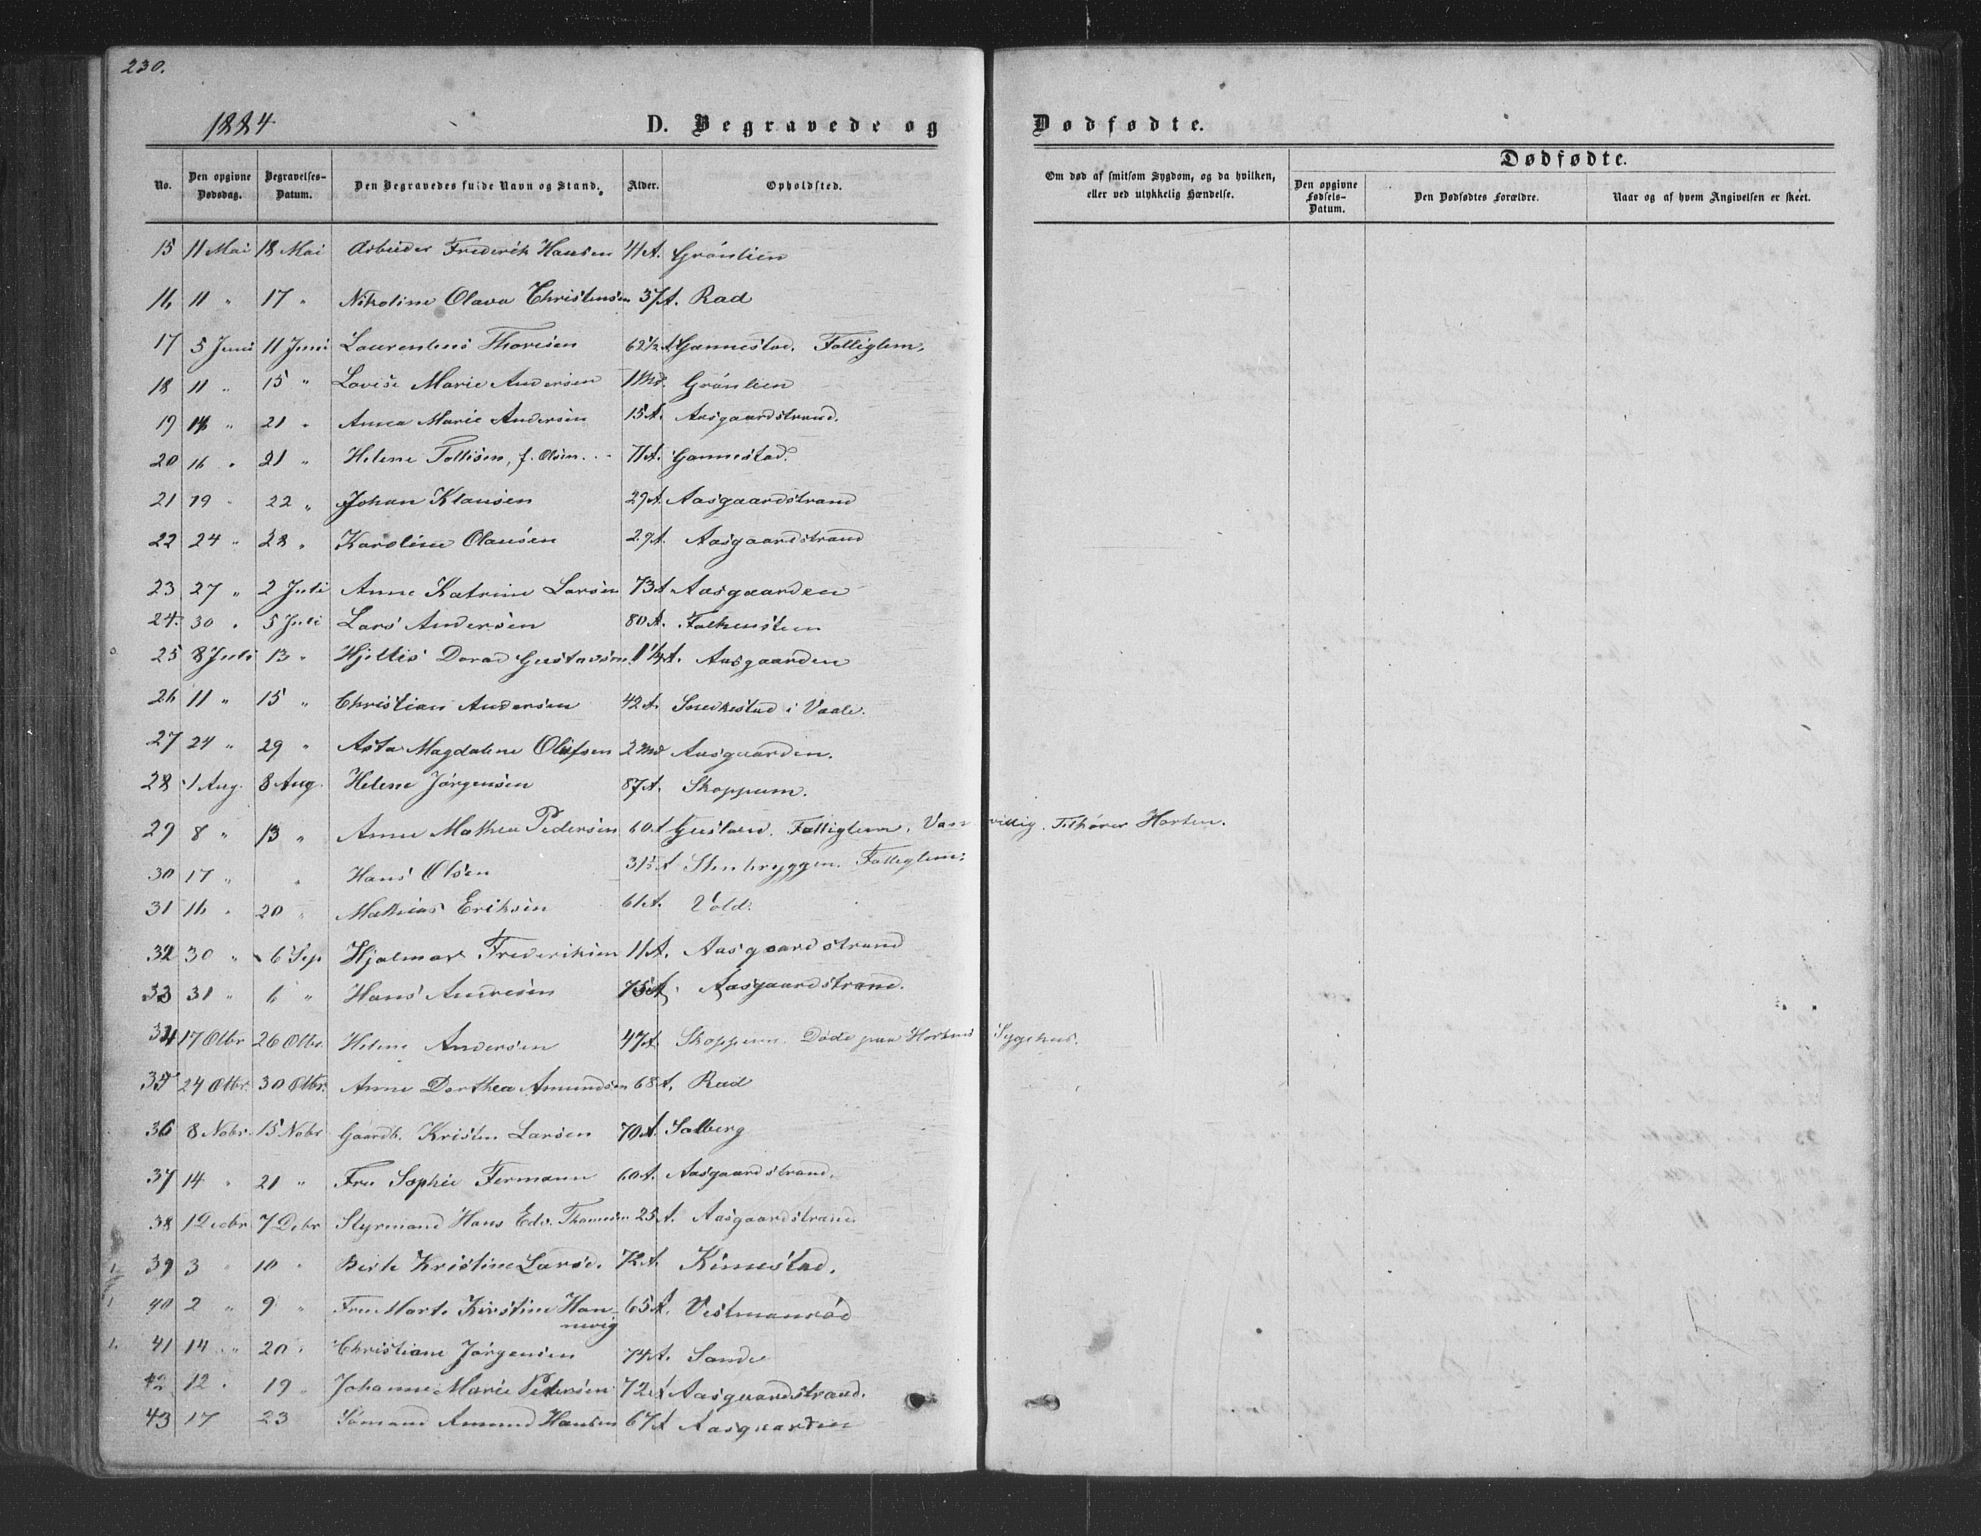 230.
1884
D. Begravede og Dødfødte.
Dødfødte.
No.
Den opgivne Dødsdag.
Begravelses-Datum.
Den Begravedes fulde Navn og Stand.
Alder.
Opholdsted.
Om død af smitsom Sygdom, og da hvilken, eller ved ulykkelig Hændelse.
Den opgivne Fødsels-Datum.
Den Dødfødtes Forældre.
Naar og af hvem Angivelsen er skéet.
15 11 Mai 18 Mai Arbeider Frederik Hansen 41 A. Grönlien
16 11 " 17 " Nikoline Olava Christensen 37 A. Rad
17 5 Juni 11 Juni Laurentius Thoresen 62½ A. Gannestad. Fattiglem.
18 11 " 15 " Lovise Marie Andersen 1 Md. Grönlien
19 14 " 21 " Anna Marie Andersen 15 A. Aasgaardstrand.
20 16 " 21 " Helene Tollisen, f. Olsen 71 A. Gannestad.
21 19 " 22 " Johan Klausen 29 A. Aasgaardstrand
22 24 " 28 " Karoline Olausen 29 A. Aasgaardstrand
23 27 " 2 Juli Anne Katrine Larsen 73 A Aasgaarden
24. 30 " 5 Juli Lars Andersen 80 A. Falkensteen
25 8 Juli 13 " Dorad Gustavsen 1¼ A. Aasgaarden
26 11 " 15 " Christian Andersen 42 A. i Vaale.
27 24 " 29 " Asta Magdalene Olafsen 2 Md Aasgaarden.
28 1 Aug. 8 Aug. Helene Jörgensen 87 A. Skoppum.
29 8 " 13 " Anne Mathea Pedersen 60 A Fattiglem. Vanvittig. Tilhører Horten.
30 17 " " Hans Olsen 31½ A Stenbryggen. Fattiglem.
31 16 " 20 " Mathias Eriksen 61 A. Vold.
32 30 " 6 Sep Hjalmar Frederiksen 11 A. Aasgaardstrand
33 31 " 6 " Hans Andresen 75 A. Aasgaardstrand.
34 17 Otbr 26 Otbr. Helene Andersen 47 A Skoppum. Döde paa Hortens Sygehus.
35 24 Otbr. 30 Otbr. Anne Dorthea Amundsen 68 A. Rad
36 8 Nobr. 15 Nobr Gaardb. Kristen Larsen 70 A. Solberg
37 14 " 21 " Fru Sophie Fermann 60 A. Aasgaardstrand.
38 1 Decbr 7 Debr Styrmand Hans Edv. Thomesen 25 A. Aasgaardstrand
39 3 " 10 " Berte Kristine Larsd. 72 A. Kinnestad.
40 2 " 9 " Fru Marte Kirstine Hannevig 65 A. Vestmanröd
41 14 " 20 " Christiane Jörgensen 74 A. Sande
42 12 " 19 " Johanne Marie Petersen 72 A Aasgaardstrand.
43 17 23 Sömand Amund Hansen 67 A Aasgaarden